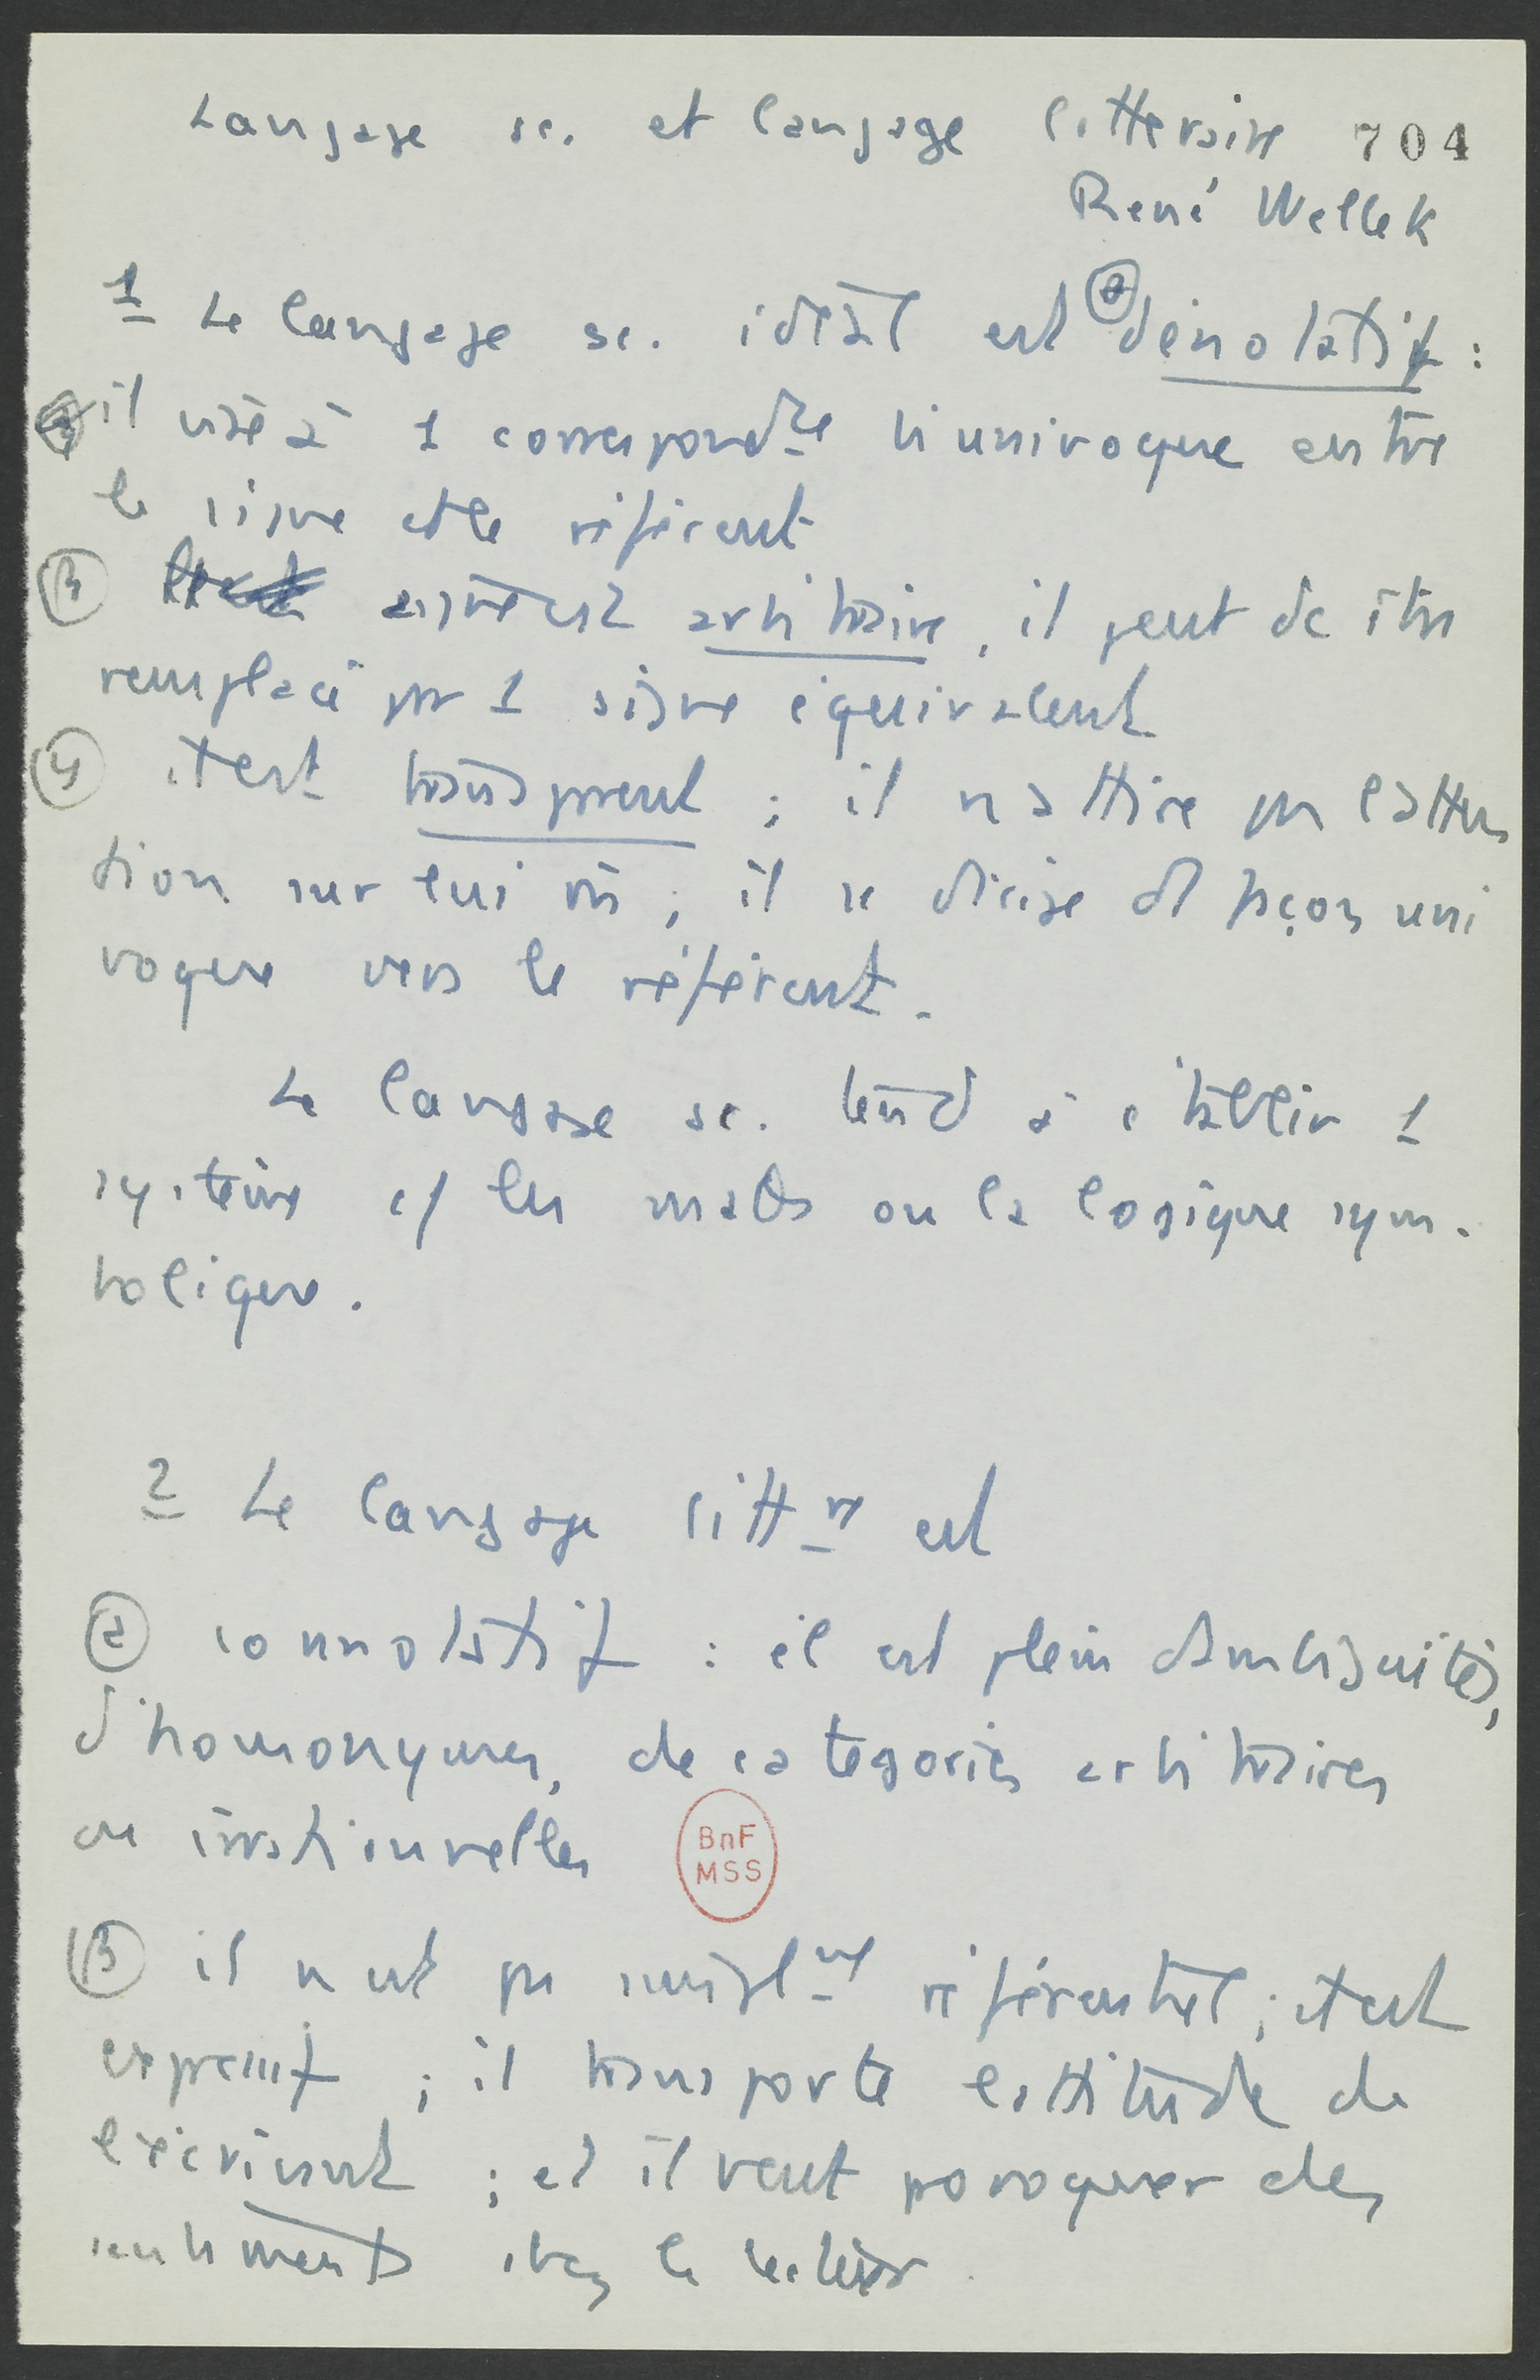 Langage sc. et langage litteraire 704
René Wellek
1 Le langage sc. idéal est ⓐ dénotatif :
il vise à 1 correspondce biunivoque entre
le signe et le référent
β signe est arbitraire, il peut dc être
remplacé par 1 signe équivalent
γ il est transparent ; il n attire pas l atten
tion sur lui m ; il se dirige d façon uni
voque vers le référent.
Le langage sc. tend à établir 1
système c/ les maths ou la logique sym-
bolique.
2 Le langage littre est
ⓐ connotatif : il est plein d'ambiguités,
d'homonymes, de catégories arbitraires
ou irrationnelles
BnF
MSS
β il n est pas simplmt référentiel ; il est
expressif ; il transporte l attitude de
l écrivant ; et il veut provoquer des
sentiments chez le lecteur.